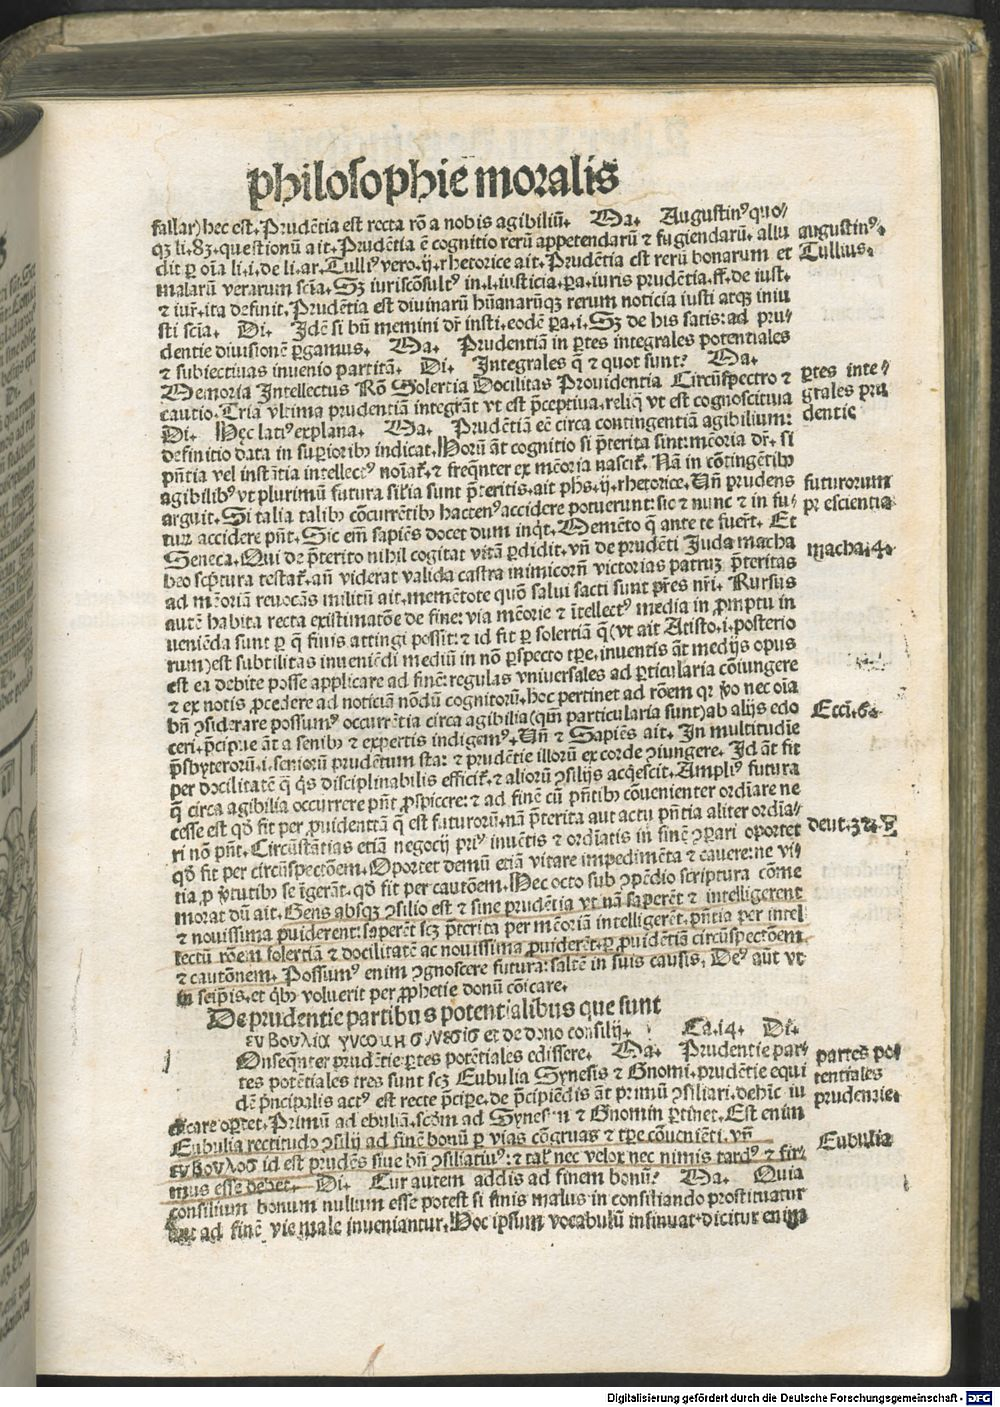 philosophie moralis
fallar) hec est. Prudētia est recta rō a nobis agibiliū. Ma. Augustinꝰ quo⸗
qȝ li. 83. questionū ait. Prudētia ē cognitio rerū appetendarū ⁊ fugiendarū. allu
dit ꝑ oīa li. i. de li. ar. Tulliꝰ vero. ij. rhetorice ait. Prudētia est rerū bonarum et
malarū verarum scīa. Sȝ iuriscōsultꝰ in. l. iusticia. ꝑa. iuris prudētia. ff. de iust.
⁊ iur. ita definit. Prudētia est diuinarū hūanarūqȝ rerum noticia iusti atqȝ iniu
sti scīa. Di. Idē si bn̄ memini dr̄ insti. eodē ꝑa. i. Sȝ de his satis: ad pru⸗
dentie diuisionē ꝑgamus. Ma. Prudentiā in ꝑtes integrales potentiales
⁊ subiectiuas inuenio partitā. Di. Integrales q̄ ⁊ quot sunt? Ma.
Memoria Intellectus Rō Solertia Docilitas Prouidentia Circūspectio ⁊
cautio. Tria vltima prudentiā integrāt vt est p̄ceptiua. reliq̄ vt est cognoscitiua
Di. Hec latiꝰ explana. Ma. Prudētiā eē circa contingentiā agibilium:
definitio data in suꝑioribꝰ indicat. Horū āt cognitio si p̄terita sint: mēoria dr̄. si
pn̄tia vel instātia intellectꝰ noīat̄. ⁊ freqn̄ter ex mēoria nascit̄. Nā in cōtingētibꝰ
agibilibꝰ vt plurimū futura silia sunt p̄teritis. ait phs. ij. rhetorice. Vn̄ prudens
arguit. Si talia talibꝰ cōcurrētibꝰ hactenꝰ accidere potuerunt: sic ⁊ nunc ⁊ in fu⸗
tur̄ accidere pn̄t. Sic em̄ sapiēs docet dum inqt. Memēto q̄ ante te fuer̄t. Et
Seneca. Qui de p̄terito nihil cogitat vitā ꝑdidit. vn̄ de prudēti Juda macha
beo scp̄tura testat̄. an̄ viderat valida castra inimicorū victorias patrū p̄teritas
ad mēoriā reuocās militū ait. mementote quō salui facti sunt pr̄es nr̄i. Rursus
autē habita recta existimatōe de fine: via mēorie ⁊ ītellectꝰ media in promptu in
ueniēda sunt ꝑ q̄ finis attingi possit: ⁊ id fit ꝑ solertiā q̄ (vt ait Aristo. i. posterio
rum) est subtilitas inueniēdi mediū in nō ꝑspecto tꝑe. inuentis āt medijs opus
est ea debite posse applicare ad finē: regulas vniuersales ad ꝑticularia cōiungere
⁊ ex notis procedere ad noticiā nōdū cognitorū. hoc pertinet ad rōem qr vo nec oīa
bn̄ ↄsiderare possumꝰ occurrētia circa agibilia (qm̄ particularia sunt) ab alijs edo
ceri. p̄cipue āt a senibꝰ ⁊ expertis indigemꝰ. Vn̄ ⁊ Sapiēs ait. In multitudīe
p̄sbyterorū. i. seniorū prudētum sta: ⁊ prudētie illorū ex corde ↄiungere. Id āt fit
per docilitatē q̄ qs disciplinabilis efficit̄. ⁊ aliorū ↄsilijs acqescit. Ampliꝰ futura
q̄ circa agibilia occurrere pn̄t prospicere: ⁊ ad finē cū pn̄tibꝰ cōuenienter ordīare ne
cesse est qđ fit per prouidentiā q̄ est futurorū. nā p̄terita aut actu pn̄tia aliter ordīa⸗
ri nō pn̄t. Circūstātias etiā negocij priꝰ inuētis ⁊ ordīatis in finē ↄpari oportet
qđ fit per circūspectōem. Oportet demū etiā vitare impedimēta ⁊ cauere: ne vi⸗
tia pro v̄tutibꝰ se īgerāt. qđ fit per cautōem. Hec octo sub ↄpēdio scriptura cōme
morat dū ait. Gens absqȝ ↄsilio est ⁊ sine prudētia vt nā saperēt ⁊ intelligerent
⁊ nouissima puiderent: saperēt scȝ p̄terita per mēoriā intelligerēt. pn̄tia per intel
lectū rōem solertiā ⁊ docilitatē ac nouissima prouiderēt. ꝑ prouidētiā circūspectōem
⁊ cautōnem. Possumꝰ enim ↄgnoscere futura: saltē in suis causis. Deꝰ aūt vt
in seipis. et qbꝰ voluerit per prophetie donū cōicare.
De prudentie partibus potentialibus que sunt
ευβουλια γνωμη σνεσισ et de dono consilij. Ca. i4. Di.
Onseqn̄ter prudētie ꝑtes potētiales edissere. Ma. Prudentie par⸗
tes potētiales tres sunt scȝ Eubulia Synesis ⁊ Gnomi. prudētie equi
dē p̄ncipalis actꝰ est recte p̄cipe. de p̄cipiēdis āt primū ↄsiliari. dehīc iu
dicare oꝑtet. Primū ad ebuliā. scōm ad Synesin ⁊ Gnomin ꝑtinet. Est enim
Eubulia rectitudo ↄsilij ad finē bonū ꝑ vias cōgruas ⁊ tꝑe cōueniēti. vn̄
ευβουλοσ id est prudēs siue bn̄ ↄsiliatiuꝰ: ⁊ tal̄ nec velox nec nimis tardꝰ ⁊ fir⸗
mus esse debet. Di. Cur autem addis ad finem bonū? Ma. Quia
consilium bonum nullum esse potest si finis malus in consiliando prostituatur
aut ad finē vie male inueniantur. Hoc ipsum vocabulū insinuat. dicitur enim
augustinꝰ.
Tullius.
ꝑtes inte⸗
grales pru
dentie
futurorum
prescientia
macha. i4.
Ecci. 6.
deut. 32.
partes po⸗
tentiales
prudentie.
Eubulia
Digitalisierung gefördert durch die Deutsche Forschungsgemeinschaft - DFG